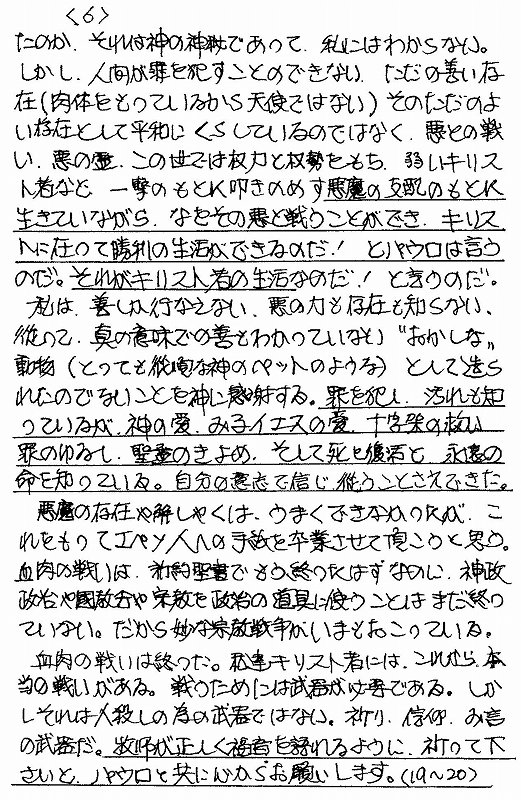 <6>
たのか、それは神の神秘であって、私にはわからない。
しかし、人間が罪を犯すことのできない、ただの善い存
在(肉体をもっているから天使ではない)そのただのよ
い存在として平和にくらしているのではなく、悪との戦
い、悪の霊、この世では权力と权勢をもち、弱いキリス
ト者など、一撃のもとに叩きのめす悪魔の支配のもとに
生きていながら、なをその悪と戦うことができ、キリス
トに在って勝利の生活ができるのだ！とパウロは言う
のだ。それがキリスト者の生活なのだ！と言うのだ。
私は、善しか行なえない、悪の力も存在も知らない、
従って、真の意味での善もわかっていない〝おかしな〟
動物(とっても従順な神のペットのような)として造ら
れたのでないことを神に感謝する。罪を犯し、汚れも知
っているが、神の愛、み子イエスの愛、十字架の救い
罪のゆるし、聖霊のきよめ、そして死と復活と、永遠の
命を知っている。自分の意志で信じ、従うことさえできた。
悪魔の存在や解しゃくは、うまくできなかったが、こ
れをもってエペソ人への手紙を卒業させて頂こうと思う。
血肉の戦いは、旧約聖書でもう終ったはずなのに、神政
政治や国教会や宗教を政治の道具に使うことはまだ終っ
ていない。だから妙な宗教戦争がいまもおこっている。
血肉の戦いは終った。私達キリスト者には、これから、本
当の戦いがある。戦うためには武器が必要である。しか
しそれは人殺しの為の武器ではない。祈り、信仰、み言
の武器だ。牧師が正しく福音を語れるように、祈って下
さいと、パウロと共に心からお願いします。(19〜20)